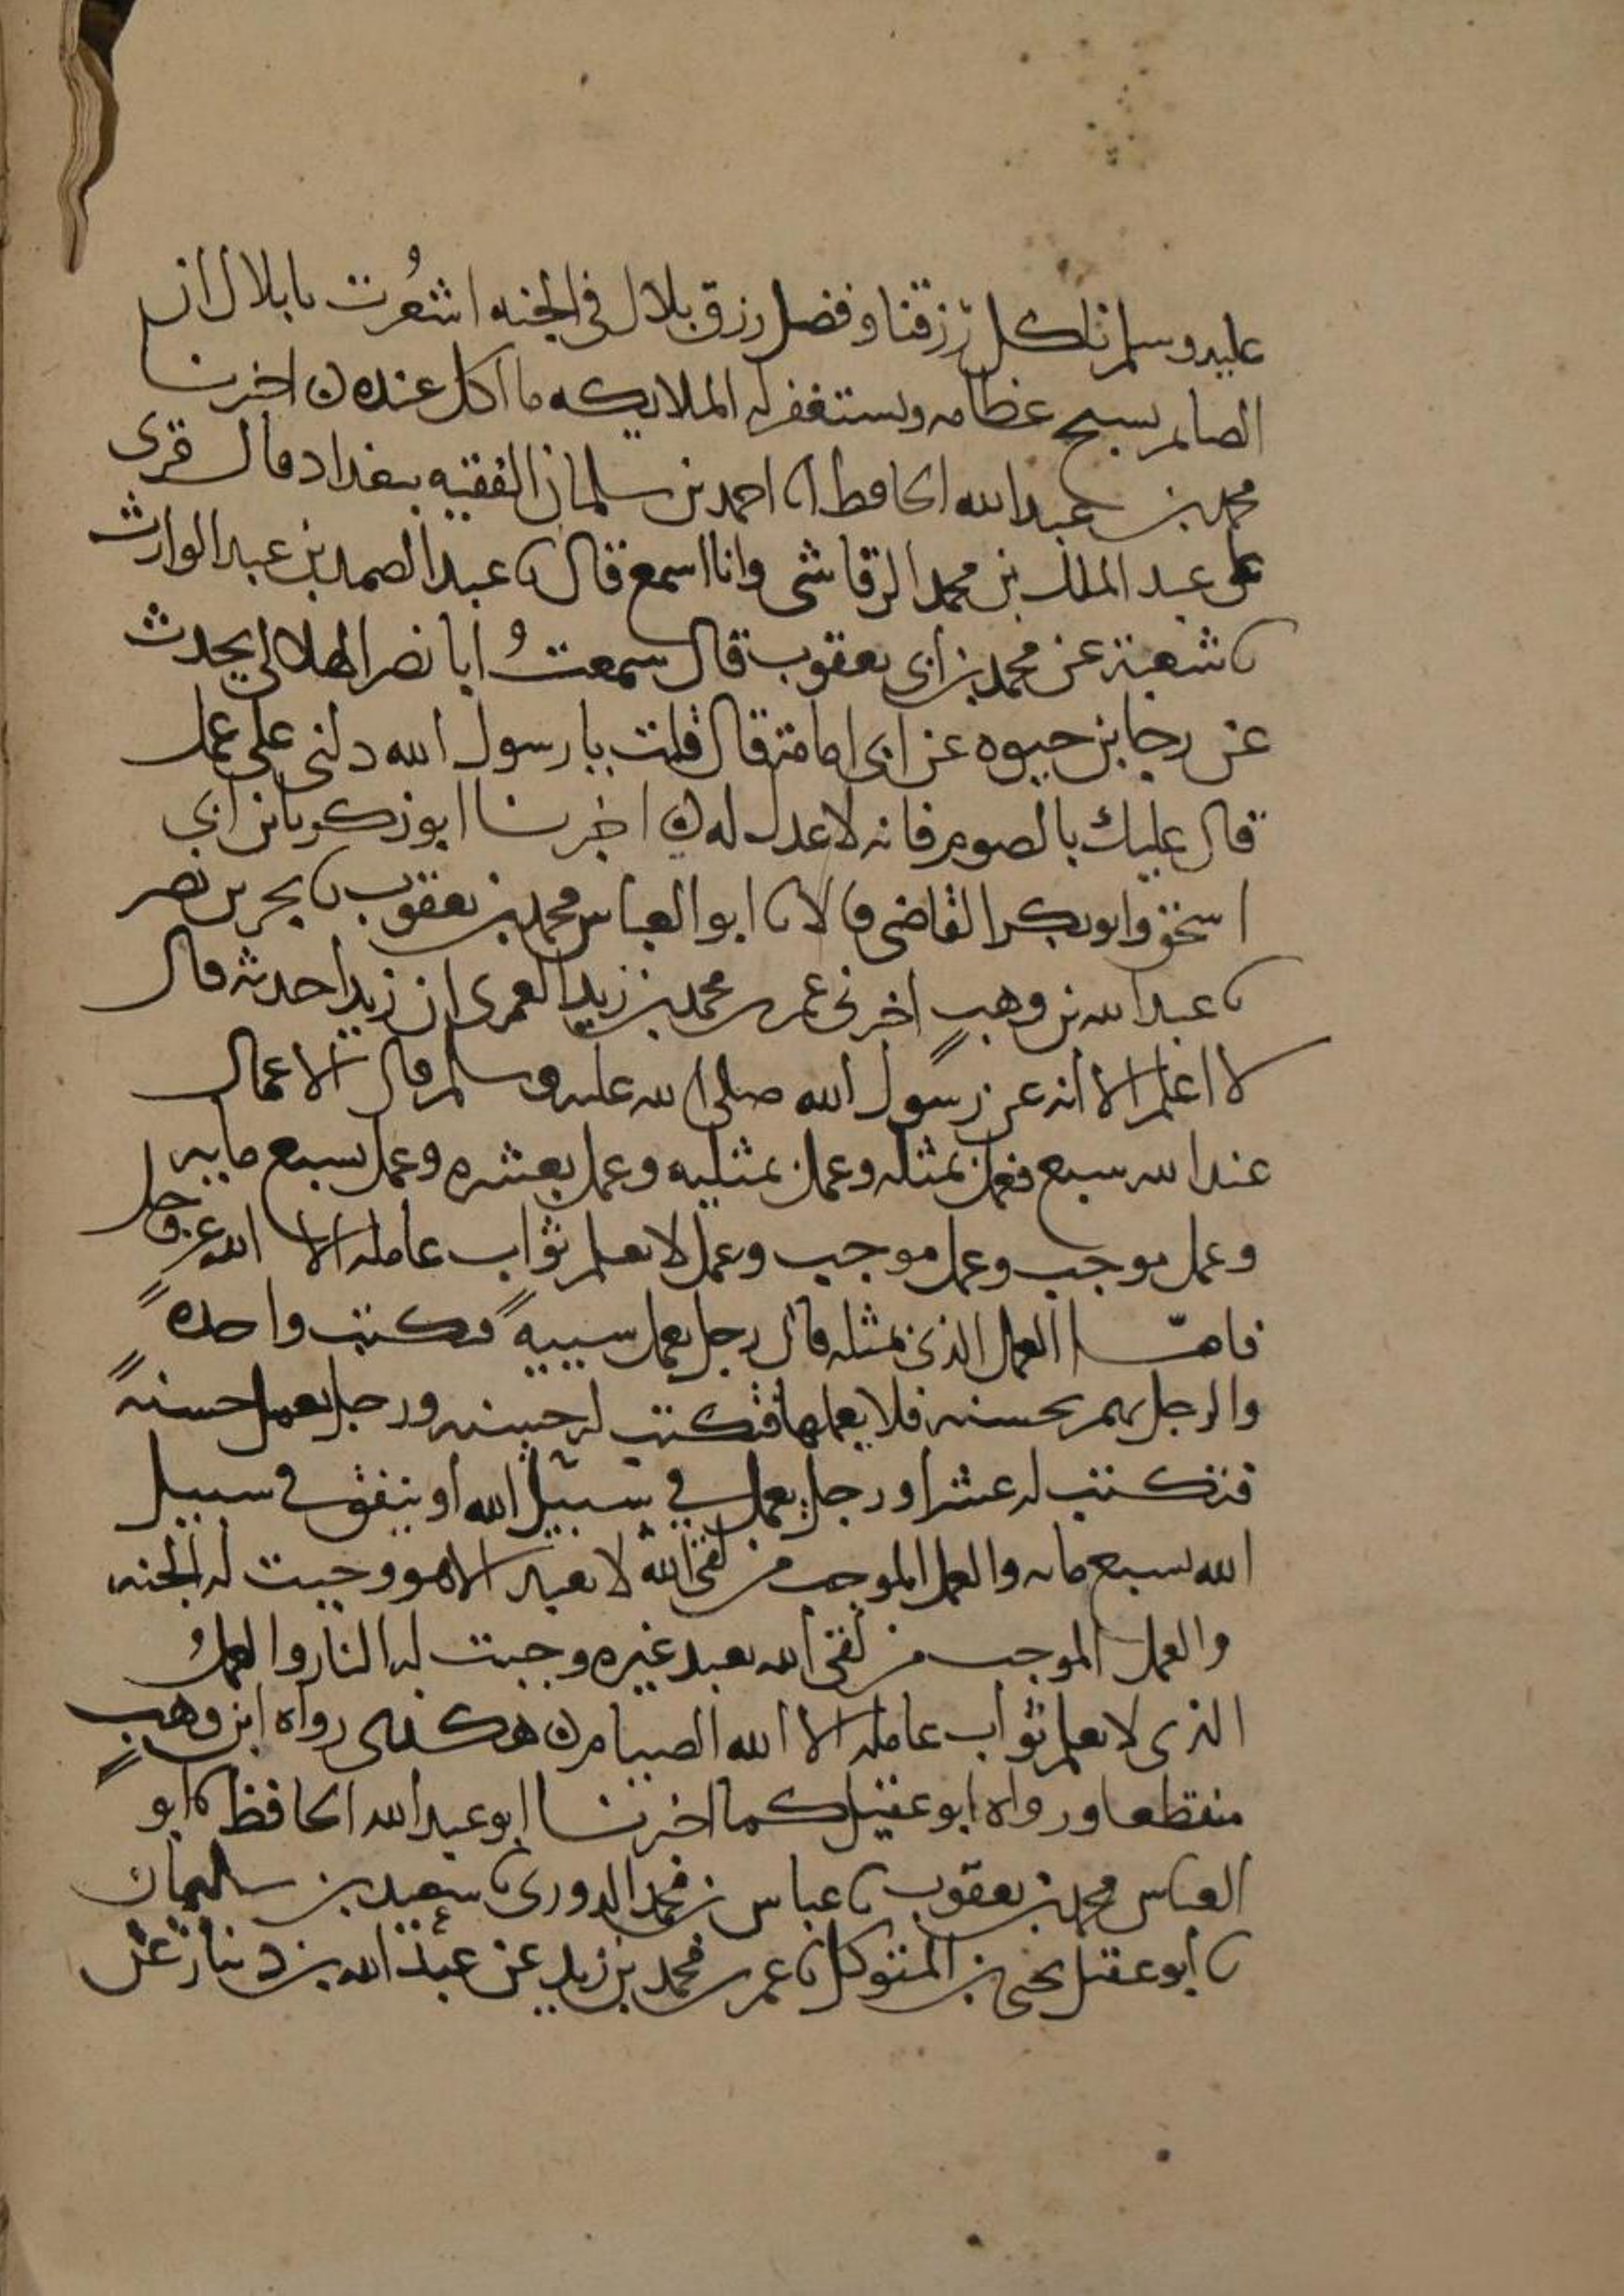 عليه وسلم ناكل رزقنا وفضل رزق بلال في الجنه اشعُرت يا بلال ان
الصايم يسبح عظامه ويستغفر له الملايكه ما اكل عنده ن اخبرنا
محمد بن عبد الله الحافظ انا احمد بن سلمان الفقيه ببغداد قال قرى
على عبد الملك بن محمد الرقاشي وانا اسمع قال نا عبد الصمد بن عبد الوارث
نا شعبة عن محمد بن ابي يعقوب قال سمعتُ ابا نصر الهلالي يحدث
عن رجا بن حيوه عن ابي امامة قال قلت يا رسول الله دلني على عمل
قال عليك بالصوم فانه لا عدل له ن اخبرنا ابو زكريا بن ابي
اسحق وابو بكر القاضي قالا نا ابو العباس محمد بن يعقوب نا بحر بن نصر
نا عبد الله بن وهبٍ اخبرني عمر بن محمد بن زيد العمري ان زيدا حدثه قال
لا اعلم الا انه عن رسول الله صلى الله عليه وسلم قال الاعمال
عند الله سبع فعمل بمثله وعمل بمثليه وعمل بعشره وعمل بسبع مايه
وعمل موجب وعمل موجب وعمل لا يعلم ثواب عامله الا الله عز وجل
فامّا العمل الذي بمثله قال رجل يعمل سييةً فتكتب واحدهً
والرجل يهم بحسنه فلا يعملها فتكتب له حسنه ورجل يعمل حسنهً
فتكتب له عشرا ورجل يعمل في سبيل الله او ينفق في سبيل
الله بسبع مايه والعمل الموجب من لقي الله لا يعبد الا هو وجبت له الجنه
والعمل الموجب من لقي الله يعبد غيره وجبت له النار والعملُ
الذي لا يعلم ثواب عامله الا الله الصيام ن هكذى رواه ابن وهبٍ
منقطعا ورواه ابو عقيل كما اخبرنا ابو عبد الله الحافظ نا ابو
العباس محمد بن يعقوب نا عباس بن محمد الدوري نا سعيد بن سليمان
نا ابو عقيل يحيى بن المتوكل نا عمر بن محمد بن زيد عن عبد الله بن دينار عن